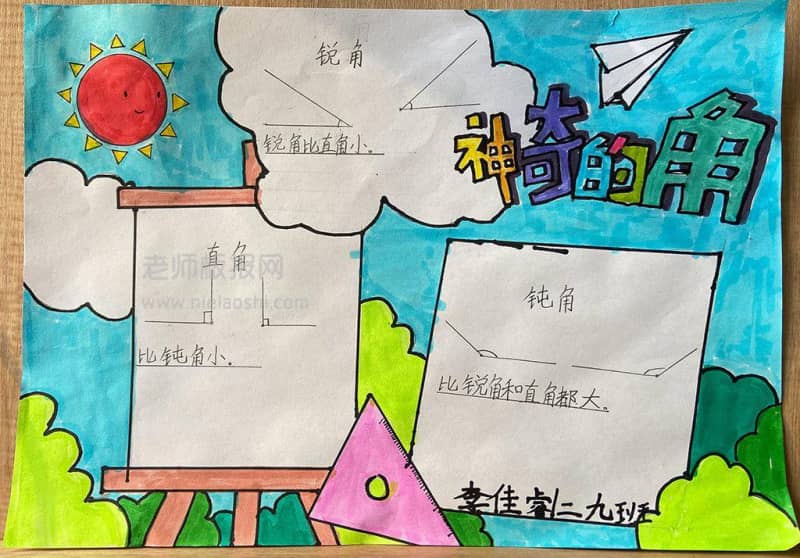 神奇的角
锐角
锐角比直角小。
直角
比钝角小。
钝角
比锐角和直角都大。
李佳睿二九班
老师板报网
www.nielaoshi.com